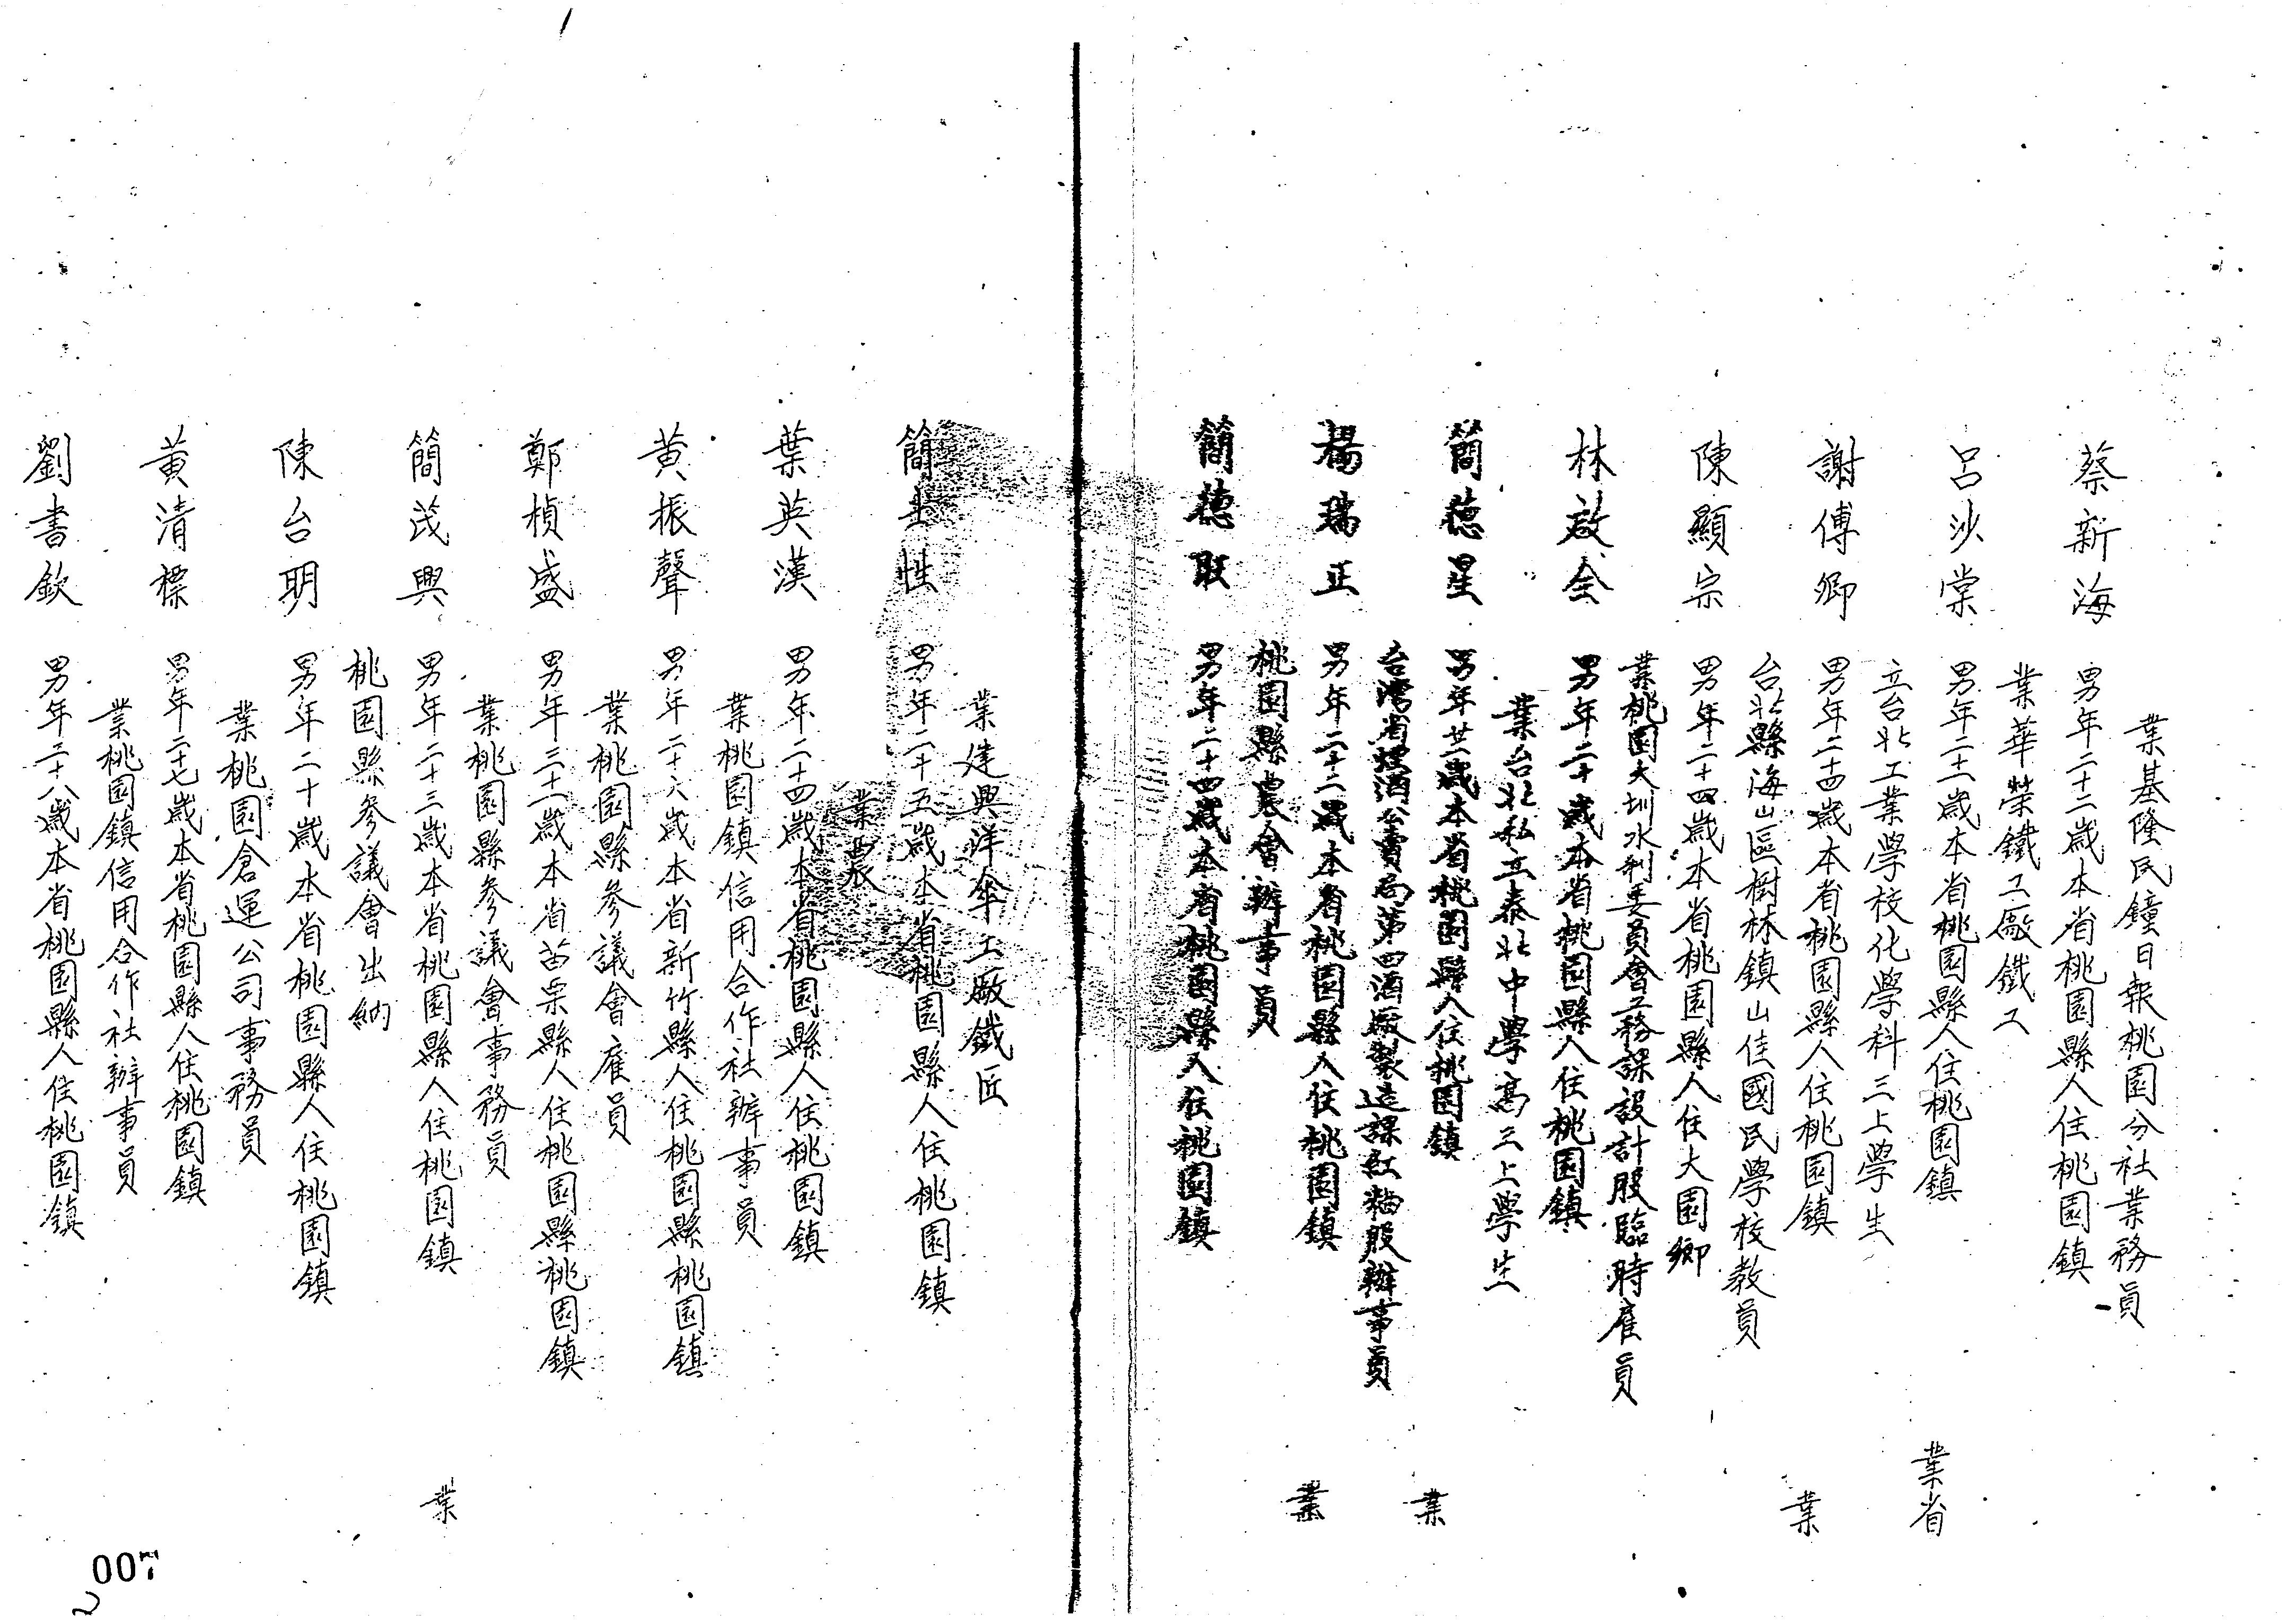 業基隆民鐘日報桃園分社業務員
蔡新海 男年二十二歲本省桃園縣人住桃園鎮
業華榮鐵工廠鐵工
呂沙棠 男年二十二歲本省桃園縣人住桃園鎮 業省
立台北工業學校化學科三上學生
謝傅卿 男年二十四歲本省桃園縣人住桃園鎮 業
台北縣海山區樹林鎮山佳國民學校教員
陳顯宗 男年二十四歲本省桃園縣人住大園鄉
業桃園大圳水利委員會工務課設計股臨時雇員
林啟全 男年二十歲本省桃園縣人住桃園鎮
業台北私立泰北中學高三上學生
簡德星 男年廿二歲本省桃園縣人住桃園鎮 業
台灣省煙酒公賣局第四酒廠製造課紅糀股辦事員
楊瑞正 男年二十二歲本省桃園縣人住桃園鎮 業
桃園縣農會辦事員
簡德 男年二十四歲本省桃園縣人住桃園鎮
業建興洋傘工廠鐵匠
簡士性 男年二十五歲本省桃園縣人住桃園鎮
業農
葉英漢 男年二十四歲本省桃園縣人住桃園鎮
業桃園鎮信用合作社辦事員
黃振聲 男年二十六歲本省新竹縣人住桃園縣桃園鎮
業桃園縣參議會雇員
鄭楨盛 男年三十一歲本省苗栗縣人住桃園縣桃園鎮
業桃園縣參議會事務員
簡茂興 男年二十三歲本省桃園縣人住桃園鎮 業
桃園縣參議會出納
陳台明 男年二十歲本省桃園縣人住桃園鎮
業桃園倉運公司事務員
黃清標 男年二十七歲本省桃園縣人住桃園鎮
業桃園鎮信用合作社辦事員
劉書欽 男年二十八歲本省桃園縣人住桃園鎮
007
2